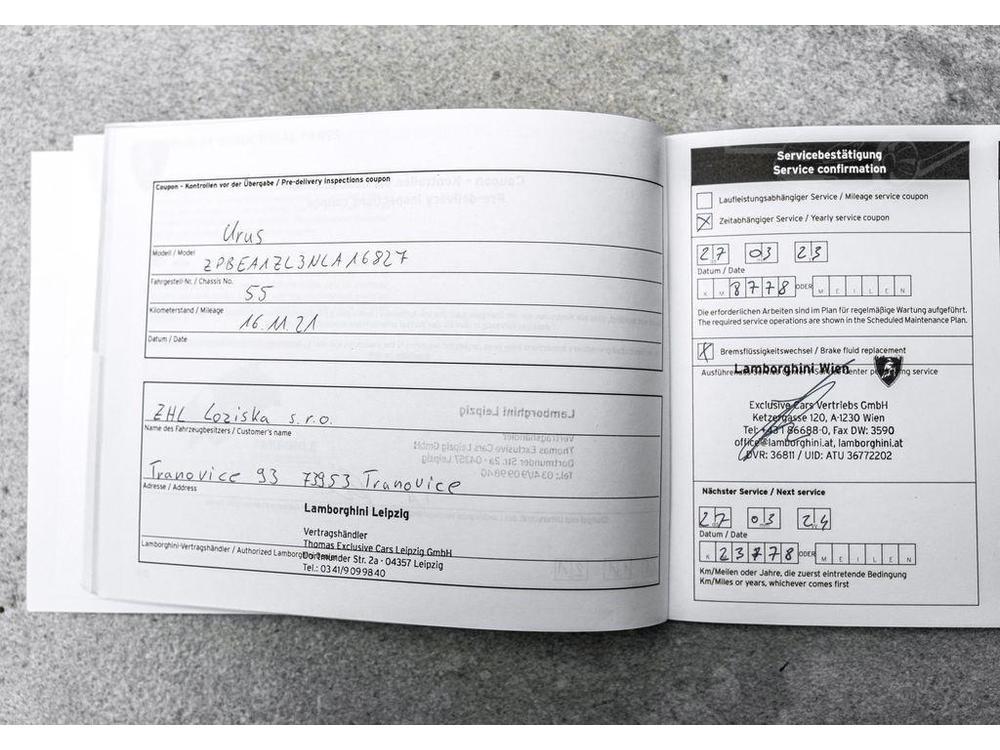 Coupon - Kontrollen vor der Übergabe / Pre-delivery inspections coupon
Urus
Modell / Model
ZPBEA1ZL3NLA16827
Fahrgestell-Nr. / Chassis No.
55
Kilometerstand / Mileage
16.11.21
Datum / Date
ZHL Loziska s.r.o.
Name des Fahrzeugbesitzers / Customer's name
Tranovice 93 73953 Tranovice
Adresse / Address
Lamborghini Leipzig
Vertragshändler
Thomas Exclusive Cars Leipzig GmbH
Lamborghini-Vertragshändler / Authorized
Dortmunder Str. 2a · 04357 Leipzig
Tel.: 0341/9099840
Servicebestätigung
Service confirmation
Laufleistungsabhängiger Service / Mileage service coupon
Zeitabhängiger Service / Yearly service coupon
27 03 23
Datum / Date
K M 8778 ODER MEILEN
Die erforderlichen Arbeiten sind im Plan für regelmäßige Wartung aufgeführt.
The required service operations are shown in the Scheduled Maintenance Plan.
Bremsflüssigkeitswechsel / Brake fluid replacement
Lamborghini Wien
Exclusive Cars Vertriebs GmbH
Ketzergasse 120, A-1230 Wien
Tel: +43 1 86688-0, Fax DW: 3590
office@lamborghini.at, lamborghini.at
DVR: 36811 / UID: ATU 36772202
Nächster Service / Next service
27 03 24
Datum / Date
K 23778 ODER MEILEN
Km/Meilen oder Jahre, die zuerst eintretende Bedingung
Km/Miles or years, whichever comes first